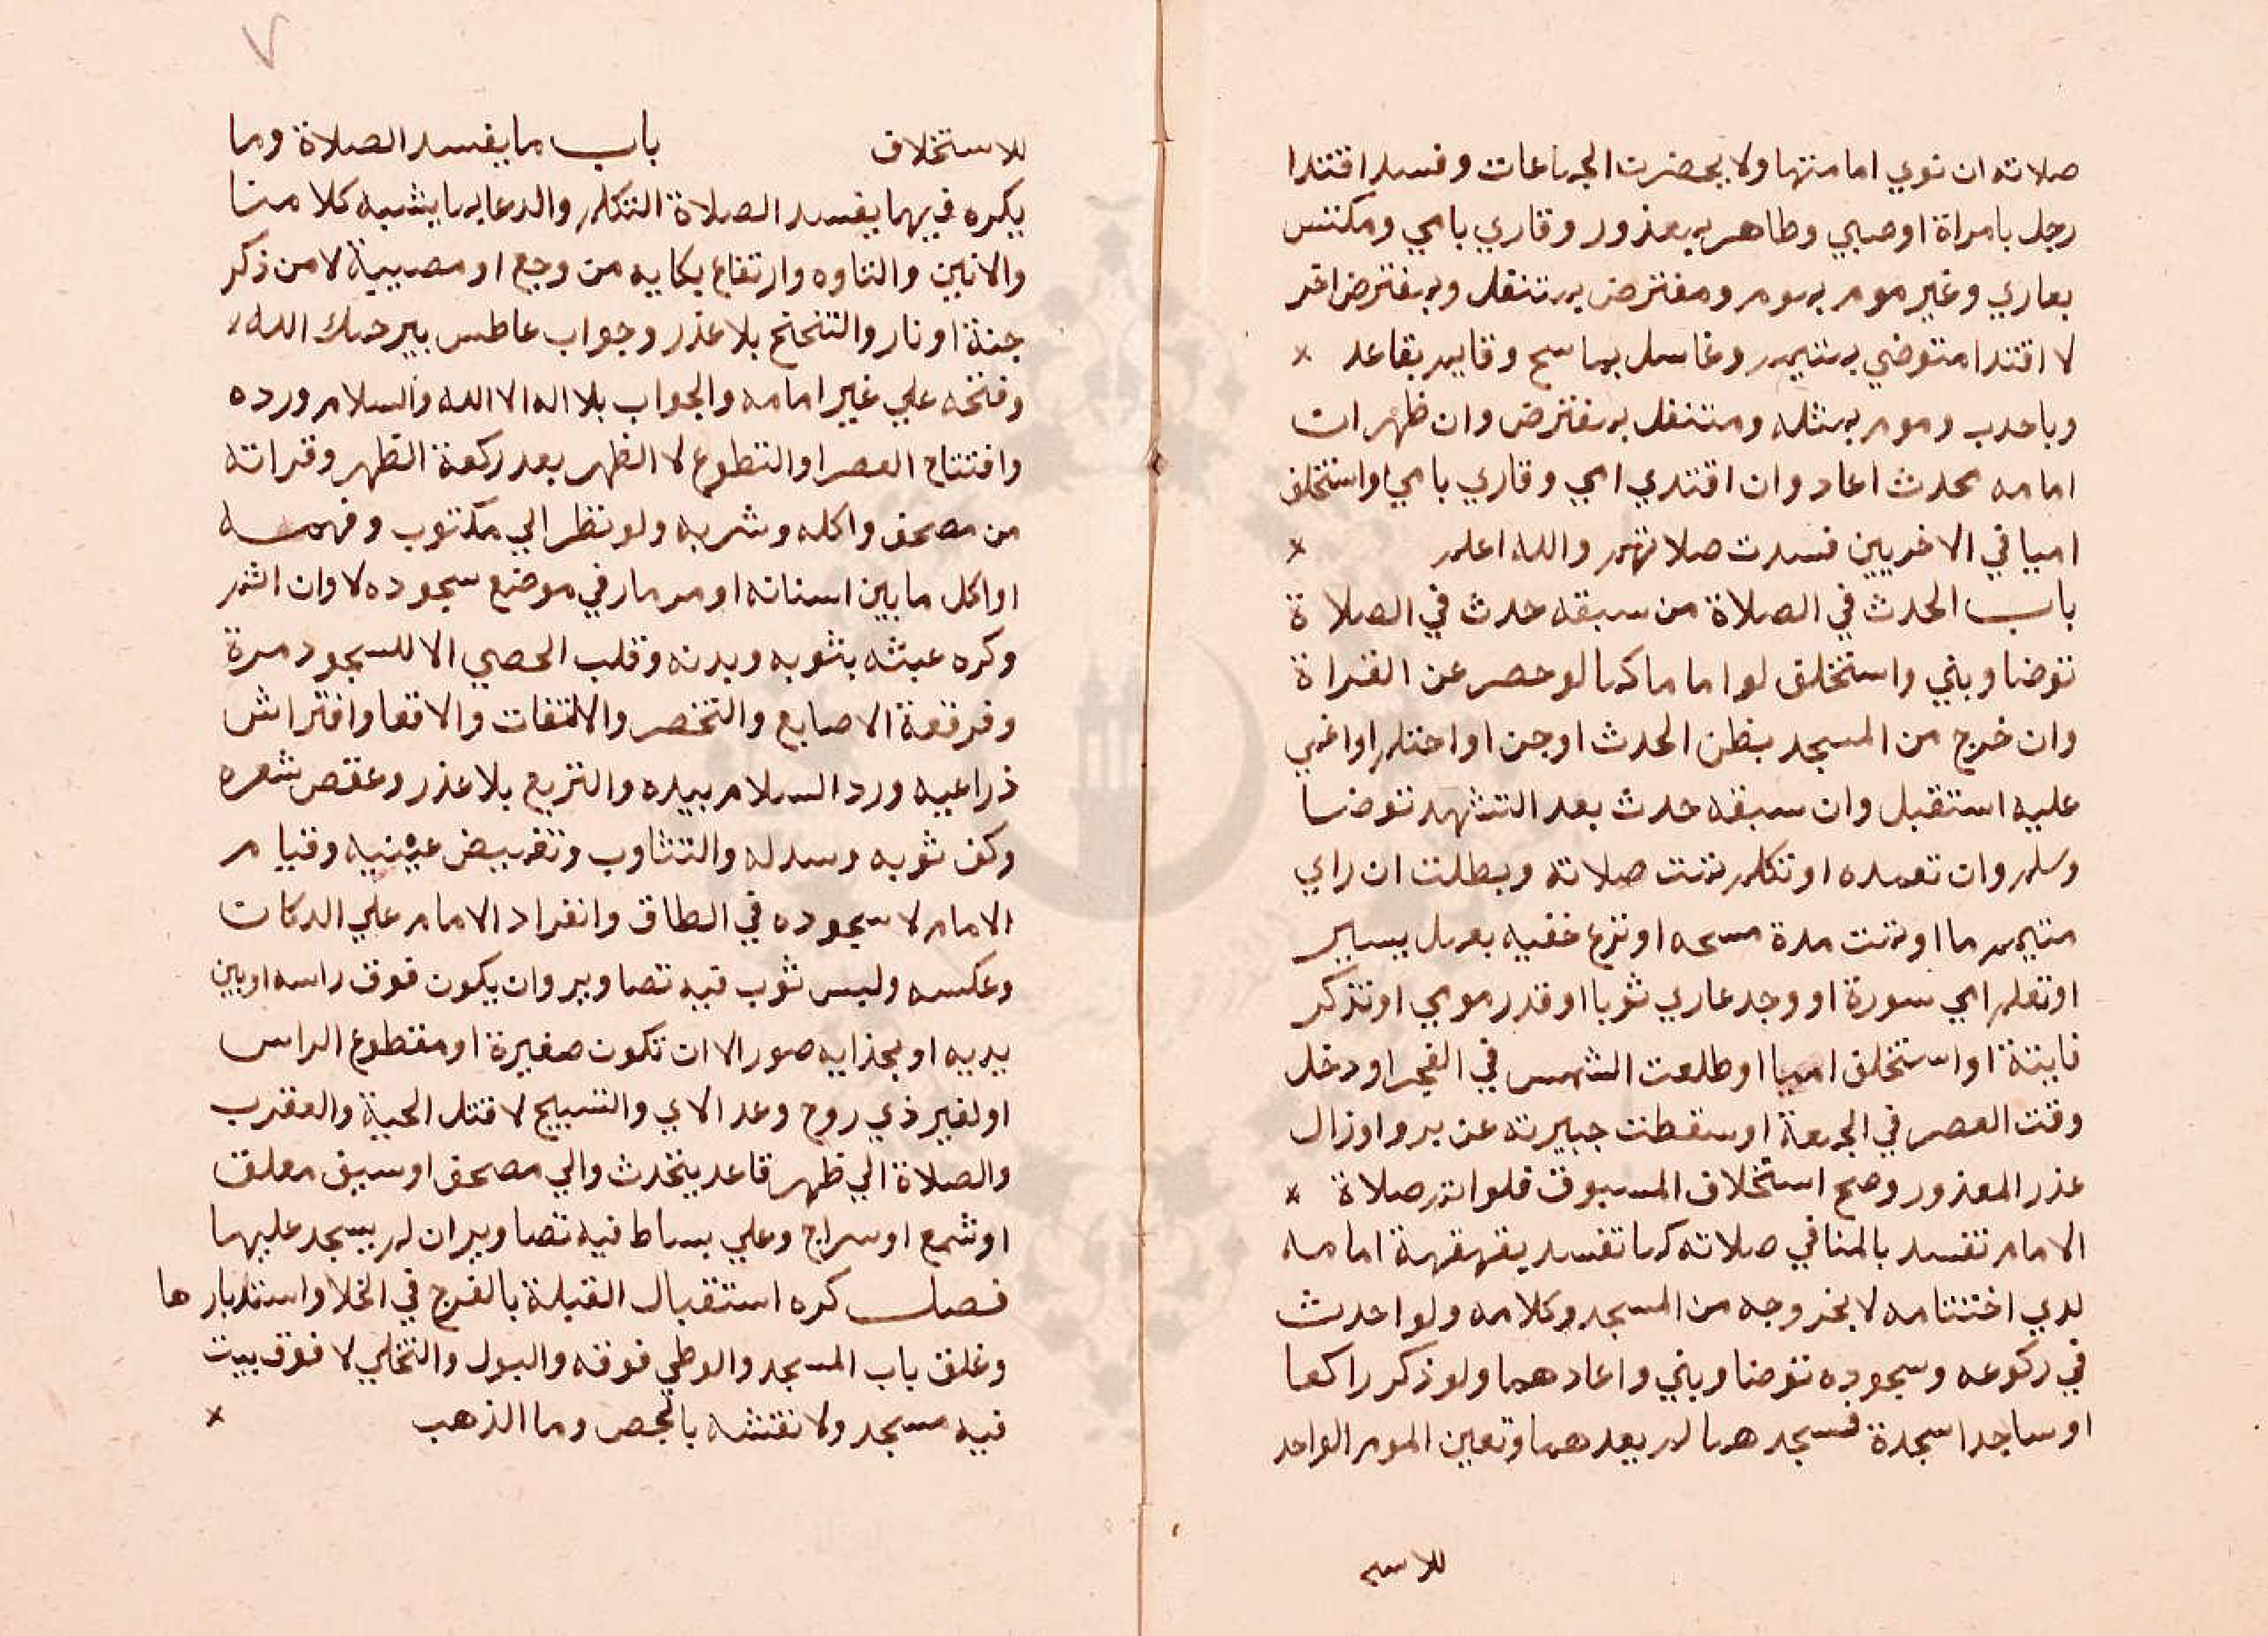 صلاته ان نوي امامتها ولا يحضرن الجماعات وفسد اقتدا
رجل بامراة او صبي وطاهر بمعذور وقاري بامي ومكتس
بعاري وغير موم بموم ومفترض بمتنفل وبمفترض اخر
لا اقتدا متوضي بمتيمم وغاسل بماسح وقايم بقاعد
وباحدب وموم بمثله ومتنفل بمفترض وان ظهر ان
امامه محدث اعاد وان اقتدي امي وقاري بامي او استخلف
اميا في الاخريين فسدت صلاتهم والله اعلم
باب الحدث في الصلاة من سبقه حدث في الصلاة
توضا وبني واستخلف لو اماما كما لو حصر عن القراة
وان خرج من المسجد بظن الحدث او جن او احتلم او اغمي
عليه استقبل وان سبقه حدث بعد التشهد توضا
وسلم وان تعمده او تكلم تمت صلاته وبطلت ان راي
متيمم ما او تمت مدة مسحه او نزع خفيه بعمل يسير
او تعلم امي سورة او وجد عاري ثوبا او قدر مومي او تذكر
فايتة او استخلف اميا او طلعت الشمس في الفجر او دخل
وقت العصر في الجمعة او سقطت جبيرته عن برو او زال
عذر المعذور وصح استخلاف المسبوق فلو اتم صلاة
الامام تفسد بالمنافي صلاته كما تفسد بقهقهة امامه
لدي اختتامه لا بخروجه من المسجد وكلامه ولو احدث
في ركوعه وسجوده توضا وبني واعادهما ولو ذكر راكعا
او ساجدا سجدة فسجدهما لم يعدهما وتعين الموم الواحد
للاسـ
٧
للاستخلاف باب ما يفسد الصلاة وما
يكره فيهما يفسد الصلاة التكلم والدعا بما يشبه كلامنا
والانين والتاوه وارتفاع بكايه من وجع او مصيبة لا من ذكر
جنة او نار والتنحنح بلا عذر وجواب عاطس بيرحمك الله
وفتحه علي غير امامه والجواب بلا اله الا الله والسلام ورده
وافتتاح العصر او التطوع لا الظهر بعد ركعة الظهر وقراته
من مصحف واكله وشربه ولو نظر الي مكتوب وفهمه
او اكل ما بين اسنانه او مر مار في موضع سجوده لا وان اثم
وكره عبثه بثوبه وبدنه وقلب الحصي الا للسجود مرة
وفرقعة الاصابع والتخصر والالتفات والاقعا وافتراش
ذراعيه ورد السلام بيده والتربع بلا عذر وعقص شعره
وكف ثوبه وسدله والتثاوب وتغميض عينيه وقيام
الامام لا سجوده في الطاق وانفراد الامام علي الدكان
وعكسه ولبس ثوب فيه تصاوير وان يكون فوق راسه او بين
يديه او بحذايه صور الا ان تكون صغيرة او مقطوع الراس
او لغير ذي روح وعد الاي والتسبيح لا قتل الحية والعقرب
والصلاة الي ظهر قاعد يتحدث والي مصحف او سيف معلق
او شمع او سراج وعلي بساط فيه تصاوير ان لم يسجد عليها
فصل كره استقبال القبلة بالفرج في الخلا واستدبارها
وغلق باب المسجد والوطي فوقه والبول والتخلي لا فوق بيت
فيه مسجد ولا نقشه بالجص وما الذهب